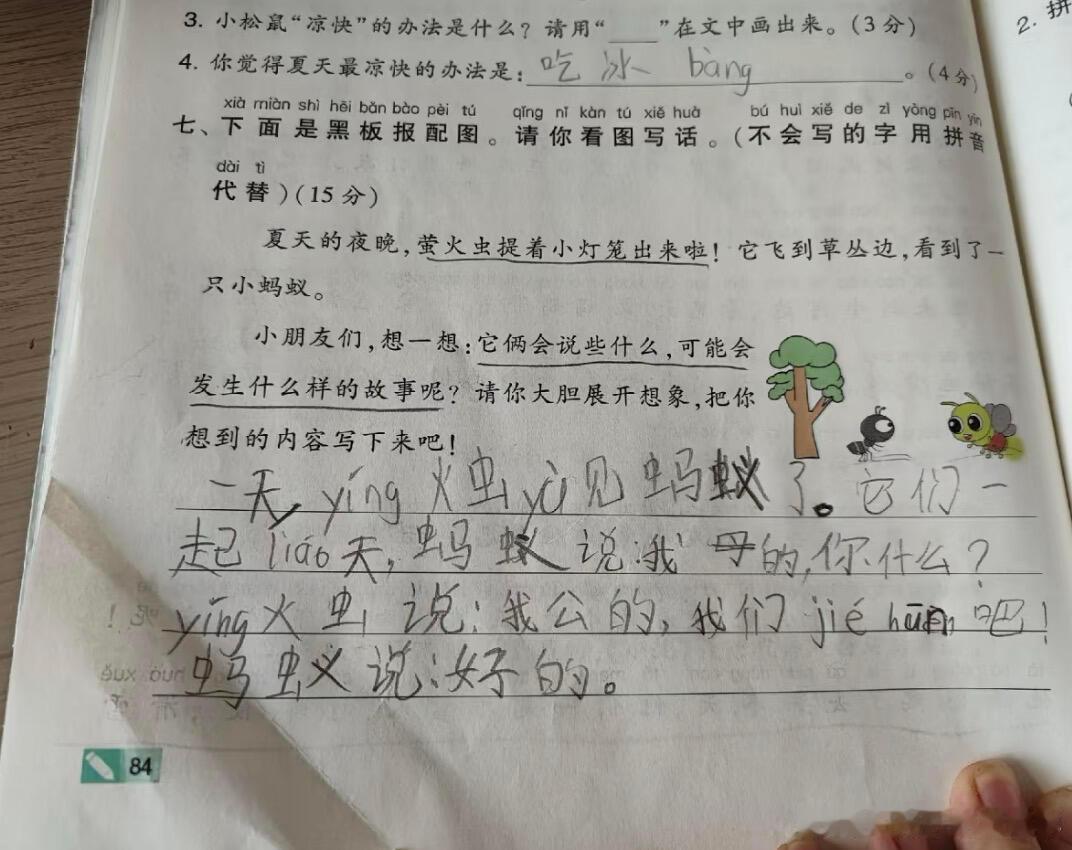 3. 小松鼠“凉快”的办法是什么？请用“____”在文中画出来。(3分)
2. 拼
4. 你觉得夏天最凉快的办法是：吃冰 bàng。(4分)
xià miàn shì hēi bǎn bào pèi tú qǐng nǐ kàn tú xiě huà bú huì xiě de zì yòng pīn yīn
七、下面是黑板报配图。请你看图写话。(不会写的字用拼音
dài tì
代替)(15分)
夏天的夜晚，萤火虫提着小灯笼出来啦！它飞到草丛边，看到了一
只小蚂蚁。
小朋友们，想一想：它俩会说些什么，可能会
发生什么样的故事呢？请你大胆展开想象，把你
想到的内容写下来吧！
一天，yíng火虫yù见蚂蚁了。它们一
起liáo天，蚂蚁说：我母的，你什么？
yíng火虫说：我公的，我们jié hūn吧！
蚂蚁说：好的。
84